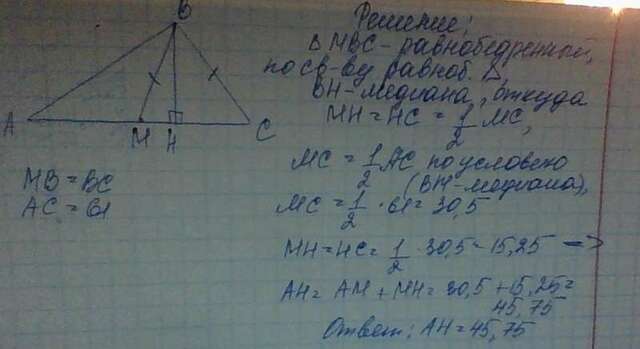 B
A
M
H
C
MB = BC
AC = 61
Решение:
Δ MBC - равнобедренный,
по св-ву равноб. Δ,
BH - медиана, откуда
MH = HC = 1/2 MC,
MC = 1/2 AC по условию
(BM - медиана),
MC = 1/2 · 61 = 30,5
MH = HC = 1/2 · 30,5 = 15,25 =>
AH = AM + MH = 30,5 + 15,25 =
45,75
Ответ: AH = 45,75